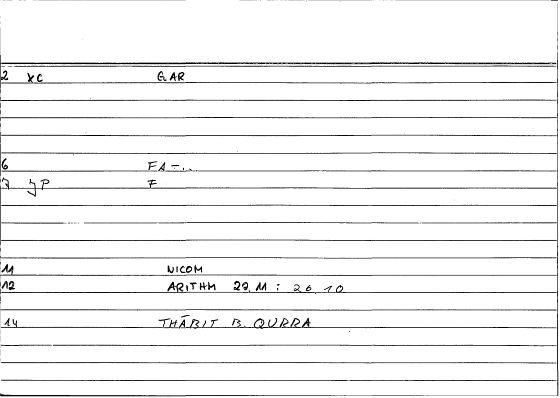 2 XC GAR
6 FA-..
7 JP F
11 NICOM
12 ARITHM 29, 11 : 26, 10
14 THĀBIT B. QURRA